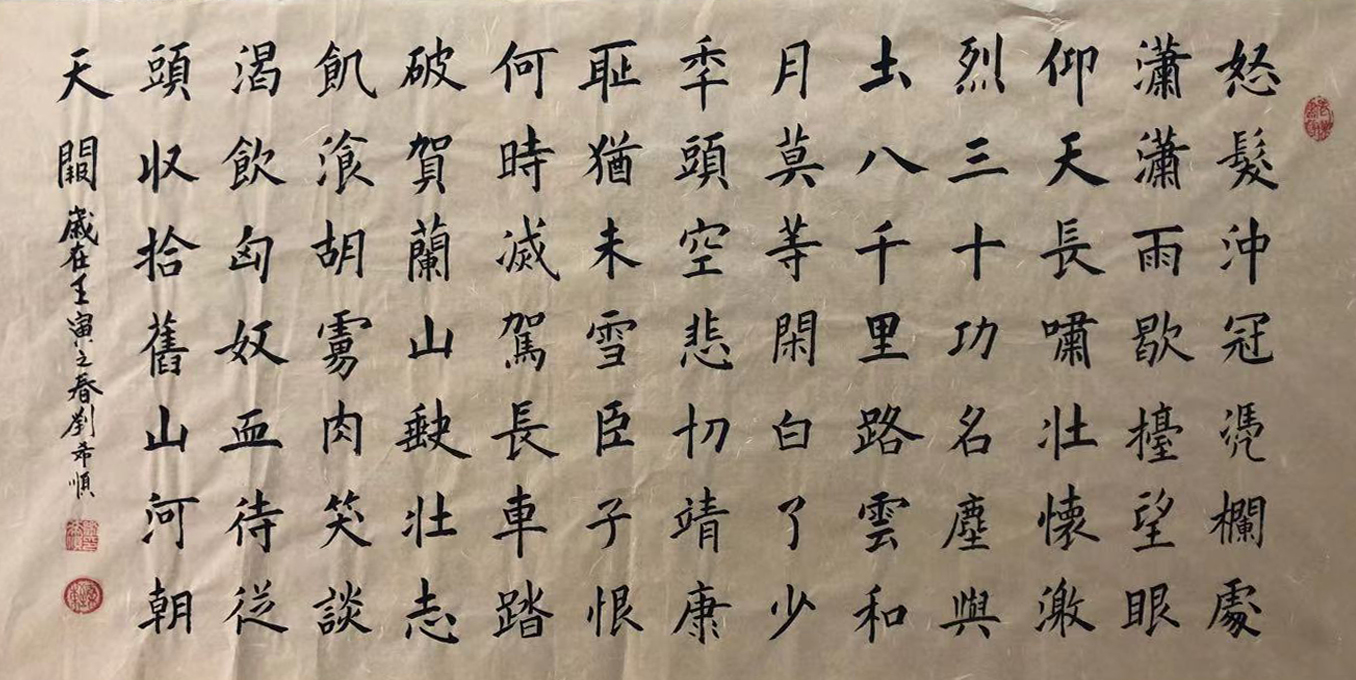 怒髮沖冠凴欄處
瀟瀟雨歇擡望眼
仰天長嘯壮懷激
烈三十功名塵與
土八千里路雲和
月莫等閑白了少
年頭空悲切靖康
耻猶未雪臣子恨
何時滅駕長車踏
破賀蘭山缺壮志
飢飡胡虜肉笑談
渴飲匈奴血待從
頭収拾舊山河朝
天闕
歲在壬寅之春劉希順